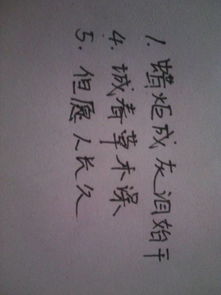 1. 蜡炬成灰泪始干
4. 城春草木深
5. 但愿人长久